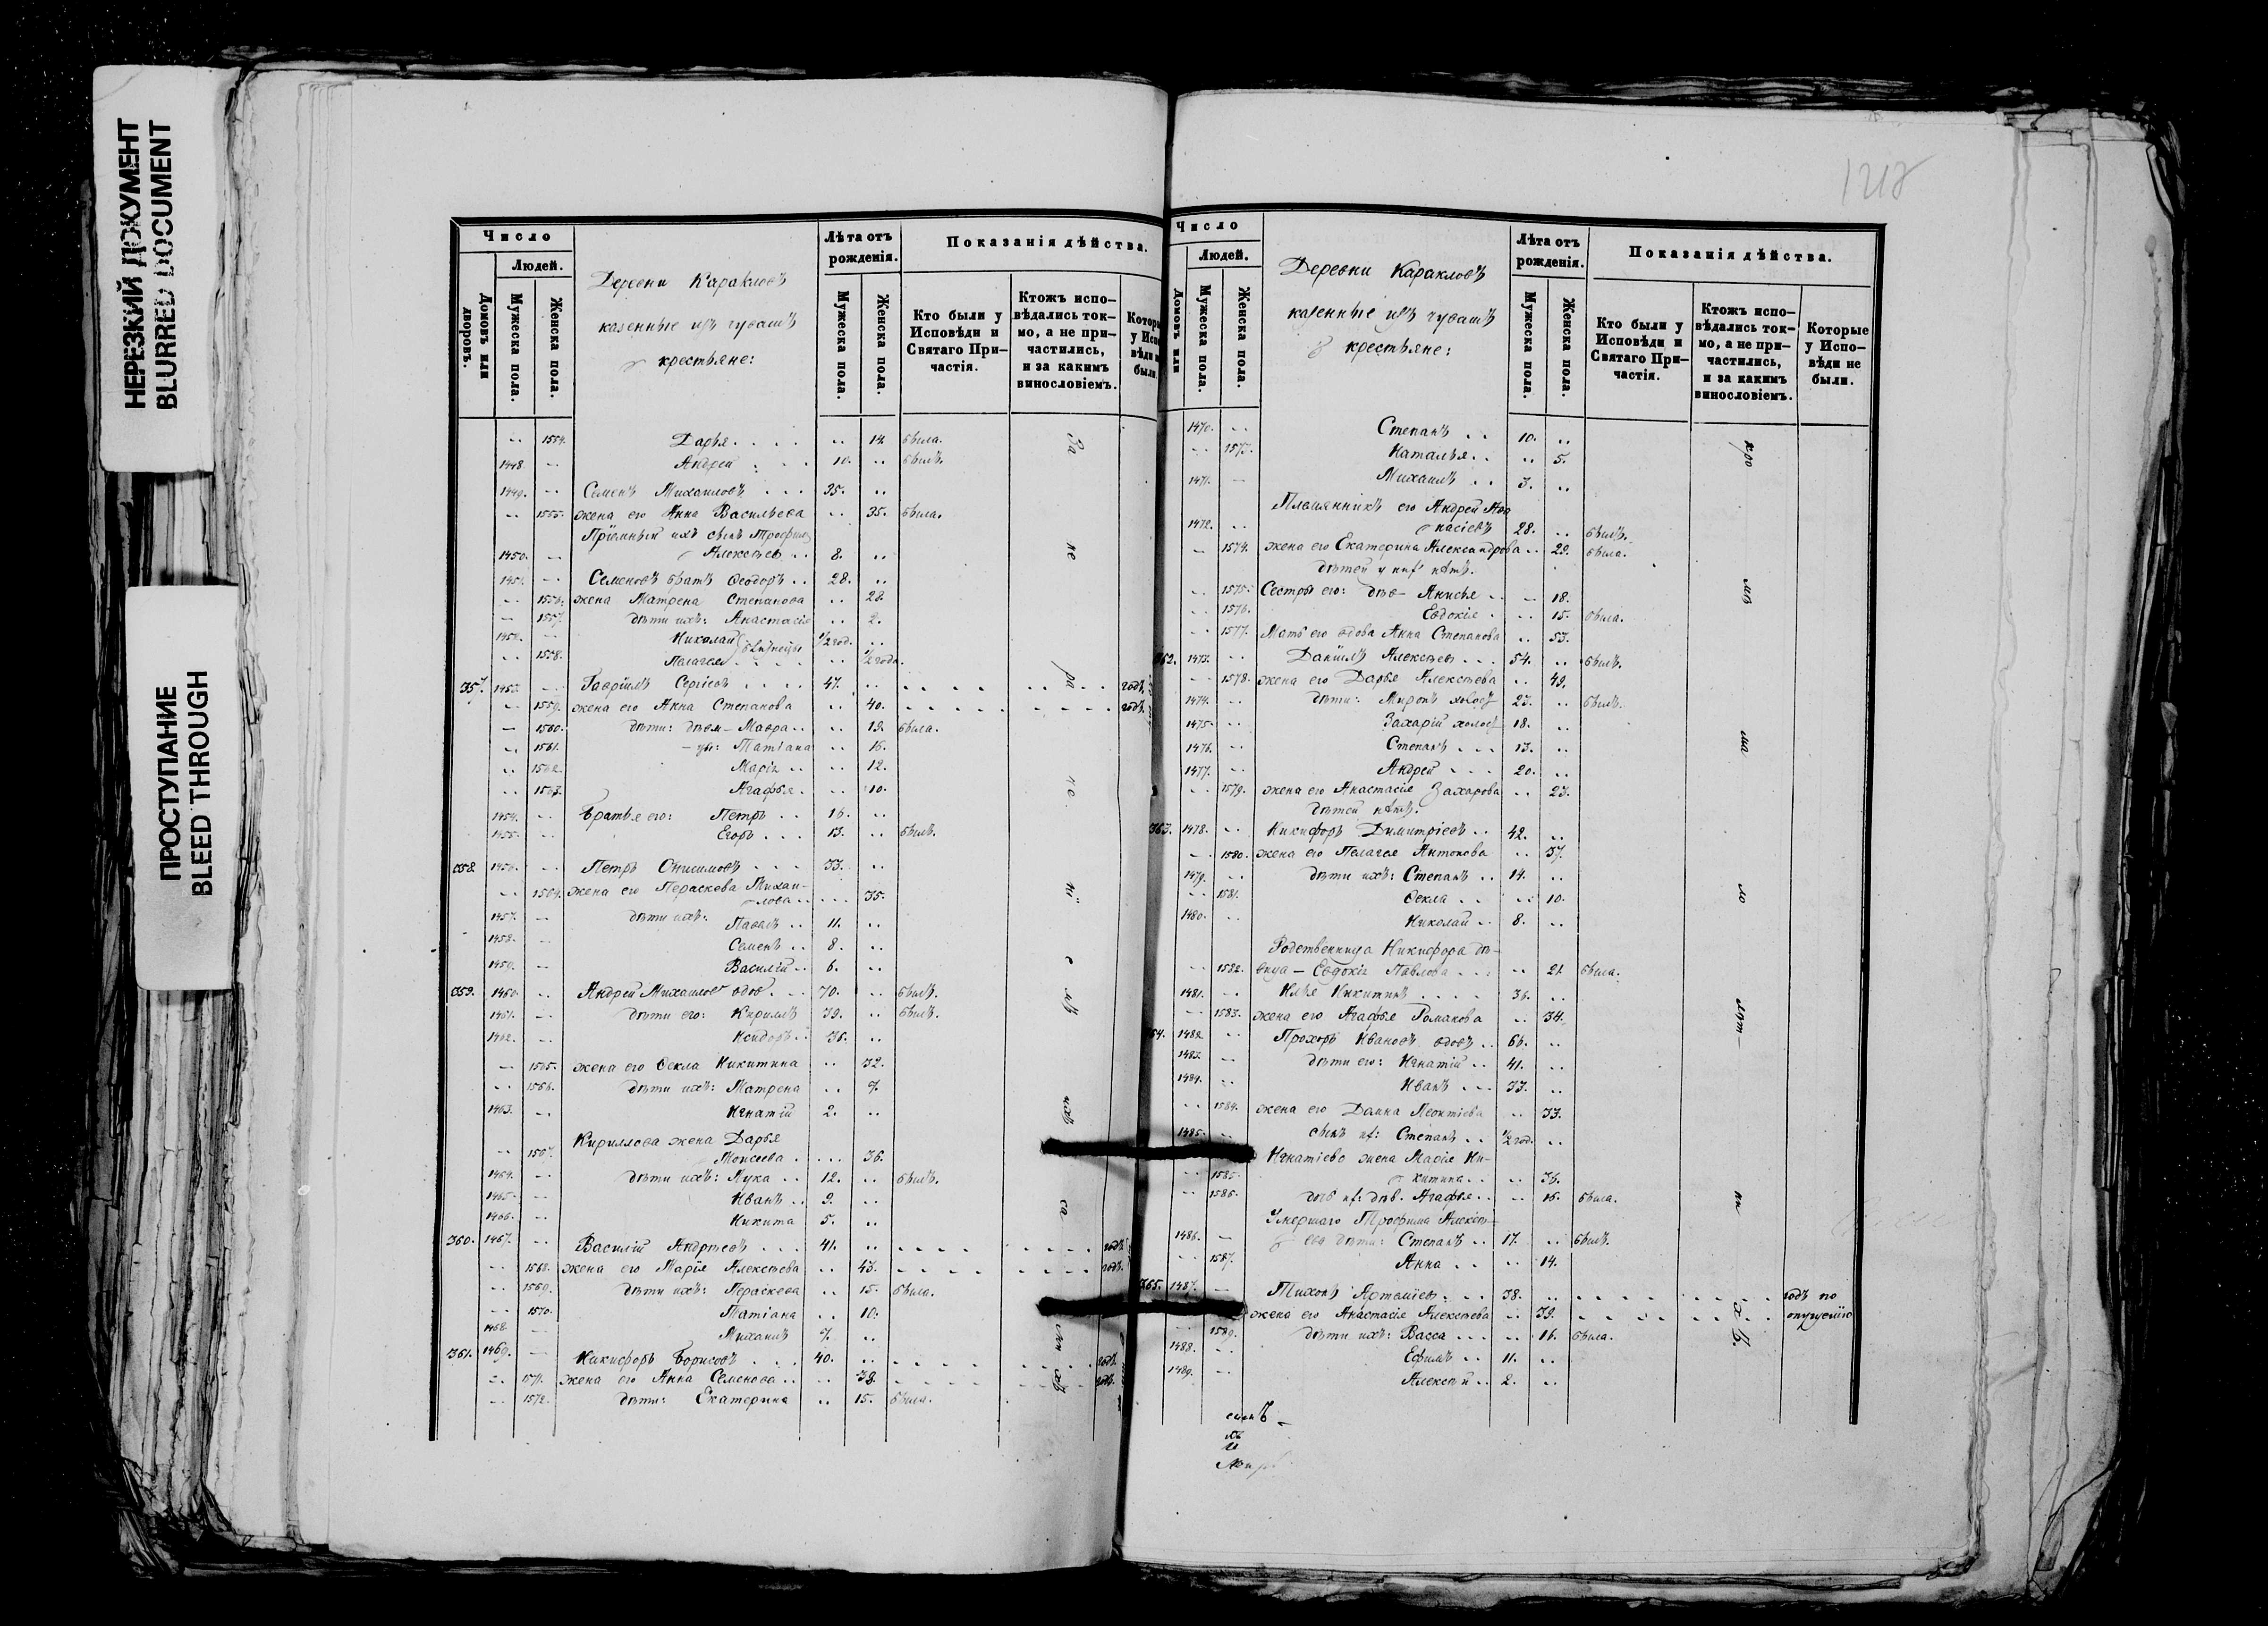 НЕРЕЗКИЙ ДОКУМЕНТ
BLURRED DOCUMENT
ПРОСТУПАНИЕ
BLEED THROUGH
Число
Людей.
Домовъ или дворовъ.
Мужеска пола.
Женска пола.
Деревни Каракловъ
казенные изъ чувашъ
крестьяне:
Лѣта отъ рожденія.
Мужеска пола.
Женска пола.
Показанія дѣйства.
Кто были у Исповѣди и Святаго При-частія.
Ктожъ испо-вѣдались ток-мо, а не при-частились, и за какимъ винословіемъ.
1554. Дарья . . . . 14. была.
1448. Андрей . . . 10. былъ.
1449. Семенъ Михаиловъ . . . 35.
1555. жена его Анна Васильева 35. была.
Пріемный ихъ сынъ Трофимъ
1450. Алексѣевъ . . 8.
1451. Семеновъ братъ Ѳеодоръ . . 28.
1556. жена Матрена Степанова 28.
1557. дѣти ихъ: Анастасія 2.
1452. Николай близнецы 1/2 год.
1558. Пелагея . . . . 1/2 года.
357. 1453. Гавріилъ Сергіевъ . . . . 47. годъ.
1559. жена его Анна Степанова 40. годъ.
1560. дѣти: дѣв– Мавра . . 19. была.
1561. – цы: Татіана 16.
1562. Марія . . 12.
1563. Агафья . 10.
1454. Братья его: Петръ . . 16.
1455. Егоръ . . . 13. былъ.
358. 1456. Петръ Онисимовъ . . . 33.
1564. жена его Параскева Михаи-
лова . . 35.
1457. дѣти ихъ: Павелъ . . 11.
1458. Семенъ . . 8.
1459. Василій . . 6.
359. 1460. Андрей Михаиловъ вдов. . . 70. былъ.
1461. дѣти его: Кириллъ 39. былъ.
1462. Исидоръ . . 36.
1565. жена его Ѳекла Никитина 32.
1566. дѣти ихъ: Матрена 7.
1463. Игнатій 2.
Кириллова жена Дарья
1567. Моисеева . . . . 36.
1464. дѣти ихъ: Лука . . 12. былъ.
1465. Иванъ . . 9.
1466. Никита 5.
360. 1467. Василій Андреевъ . . . 41. годъ
1568. жена его Марія Алексѣева 43. годъ.
1569. дѣти ихъ: Параскева 15. была.
1570. Татіана 10.
1468. Михаилъ 7.
361. 1469. Никифоръ Борисовъ . . . 40. годъ.
1571. жена его Анна Семенова . . 38. годъ.
1572. дѣти: Екатерина 15. была.
За
не
ра
ихъ
Число
Людей.
Домовъ или
Мужеска пола.
Женска пола.
Деревни Каракловъ
казенные изъ чувашъ
крестьяне:
Лѣта отъ рожденія.
Мужеска пола.
Женска пола.
Показанія дѣйства.
Кто были у Исповѣди и Святаго При-частія.
Ктожъ испо-вѣдались ток-мо, а не при-частились, и за какимъ винословіемъ.
Которые у Испо-вѣди не были.
1470. Степанъ . . 10.
1573. Наталья . . 5.
1471. Михаилъ . . 3.
Племянникъ его Андрей Аѳа
1472. насіевъ 28. былъ.
1574. жена его Екатерина Александрова . . 29. была.
дѣтей у нихъ нѣтъ.
1575. Сестры его: дѣв– Анисья . . 18.
1576. Евдокія . 15. была.
1577. Мать его вдова Анна Степанова 53.
362. 1473. Даніилъ Алексѣевъ . . . 54. былъ.
1578. жена его Дарья Алексѣева 49.
1474. дѣти: Миронъ холост 23. былъ.
1475. Захарій холост 18.
1476. Степанъ . . . 13.
1477. Андрей . . . . 20.
1579. жена его Анастасія Захарова 23.
дѣтей нѣтъ.
363. 1478. Никифоръ Димитріевъ . . 42.
1580. жена его Пелагея Антонова 37.
1479. дѣти ихъ: Степанъ . . 14.
1581. Ѳекла . . 10.
1480. Николай . . 8.
Родственница Никифора дѣ-
1582. вица – Евдокія Павлова . . . 21. была.
1481. Илья Никитинъ . . . . 36.
1583. жена его Агафья Романова 34.
364. 1482. Прохоръ Ивановъ вдовъ . . 66.
1483. дѣти его: Игнатій . . 41.
1484. Иванъ . . . 33.
1584. жена его Домна Леонтіева 33.
1485. сынъ их: Степанъ . . 1/2 год.
Игнатіева жена Марія Ни-
1585. китина . . 36.
1586. дочь их: дѣв. Агафья . . 16. была.
Умершаго Трофима Алексѣ-
1486. ева дѣти: Степанъ . . 17. былъ.
1587. Анна . . 14.
365. 1487. Тихонъ Артеміевъ . . . 38. годъ по
жена его Анастасія Алексѣева 39. опущенію
1589. дѣти ихъ: Васса . . . 16. была.
1488. Ефимъ . . 11.
1489. Алексѣй . . 2.